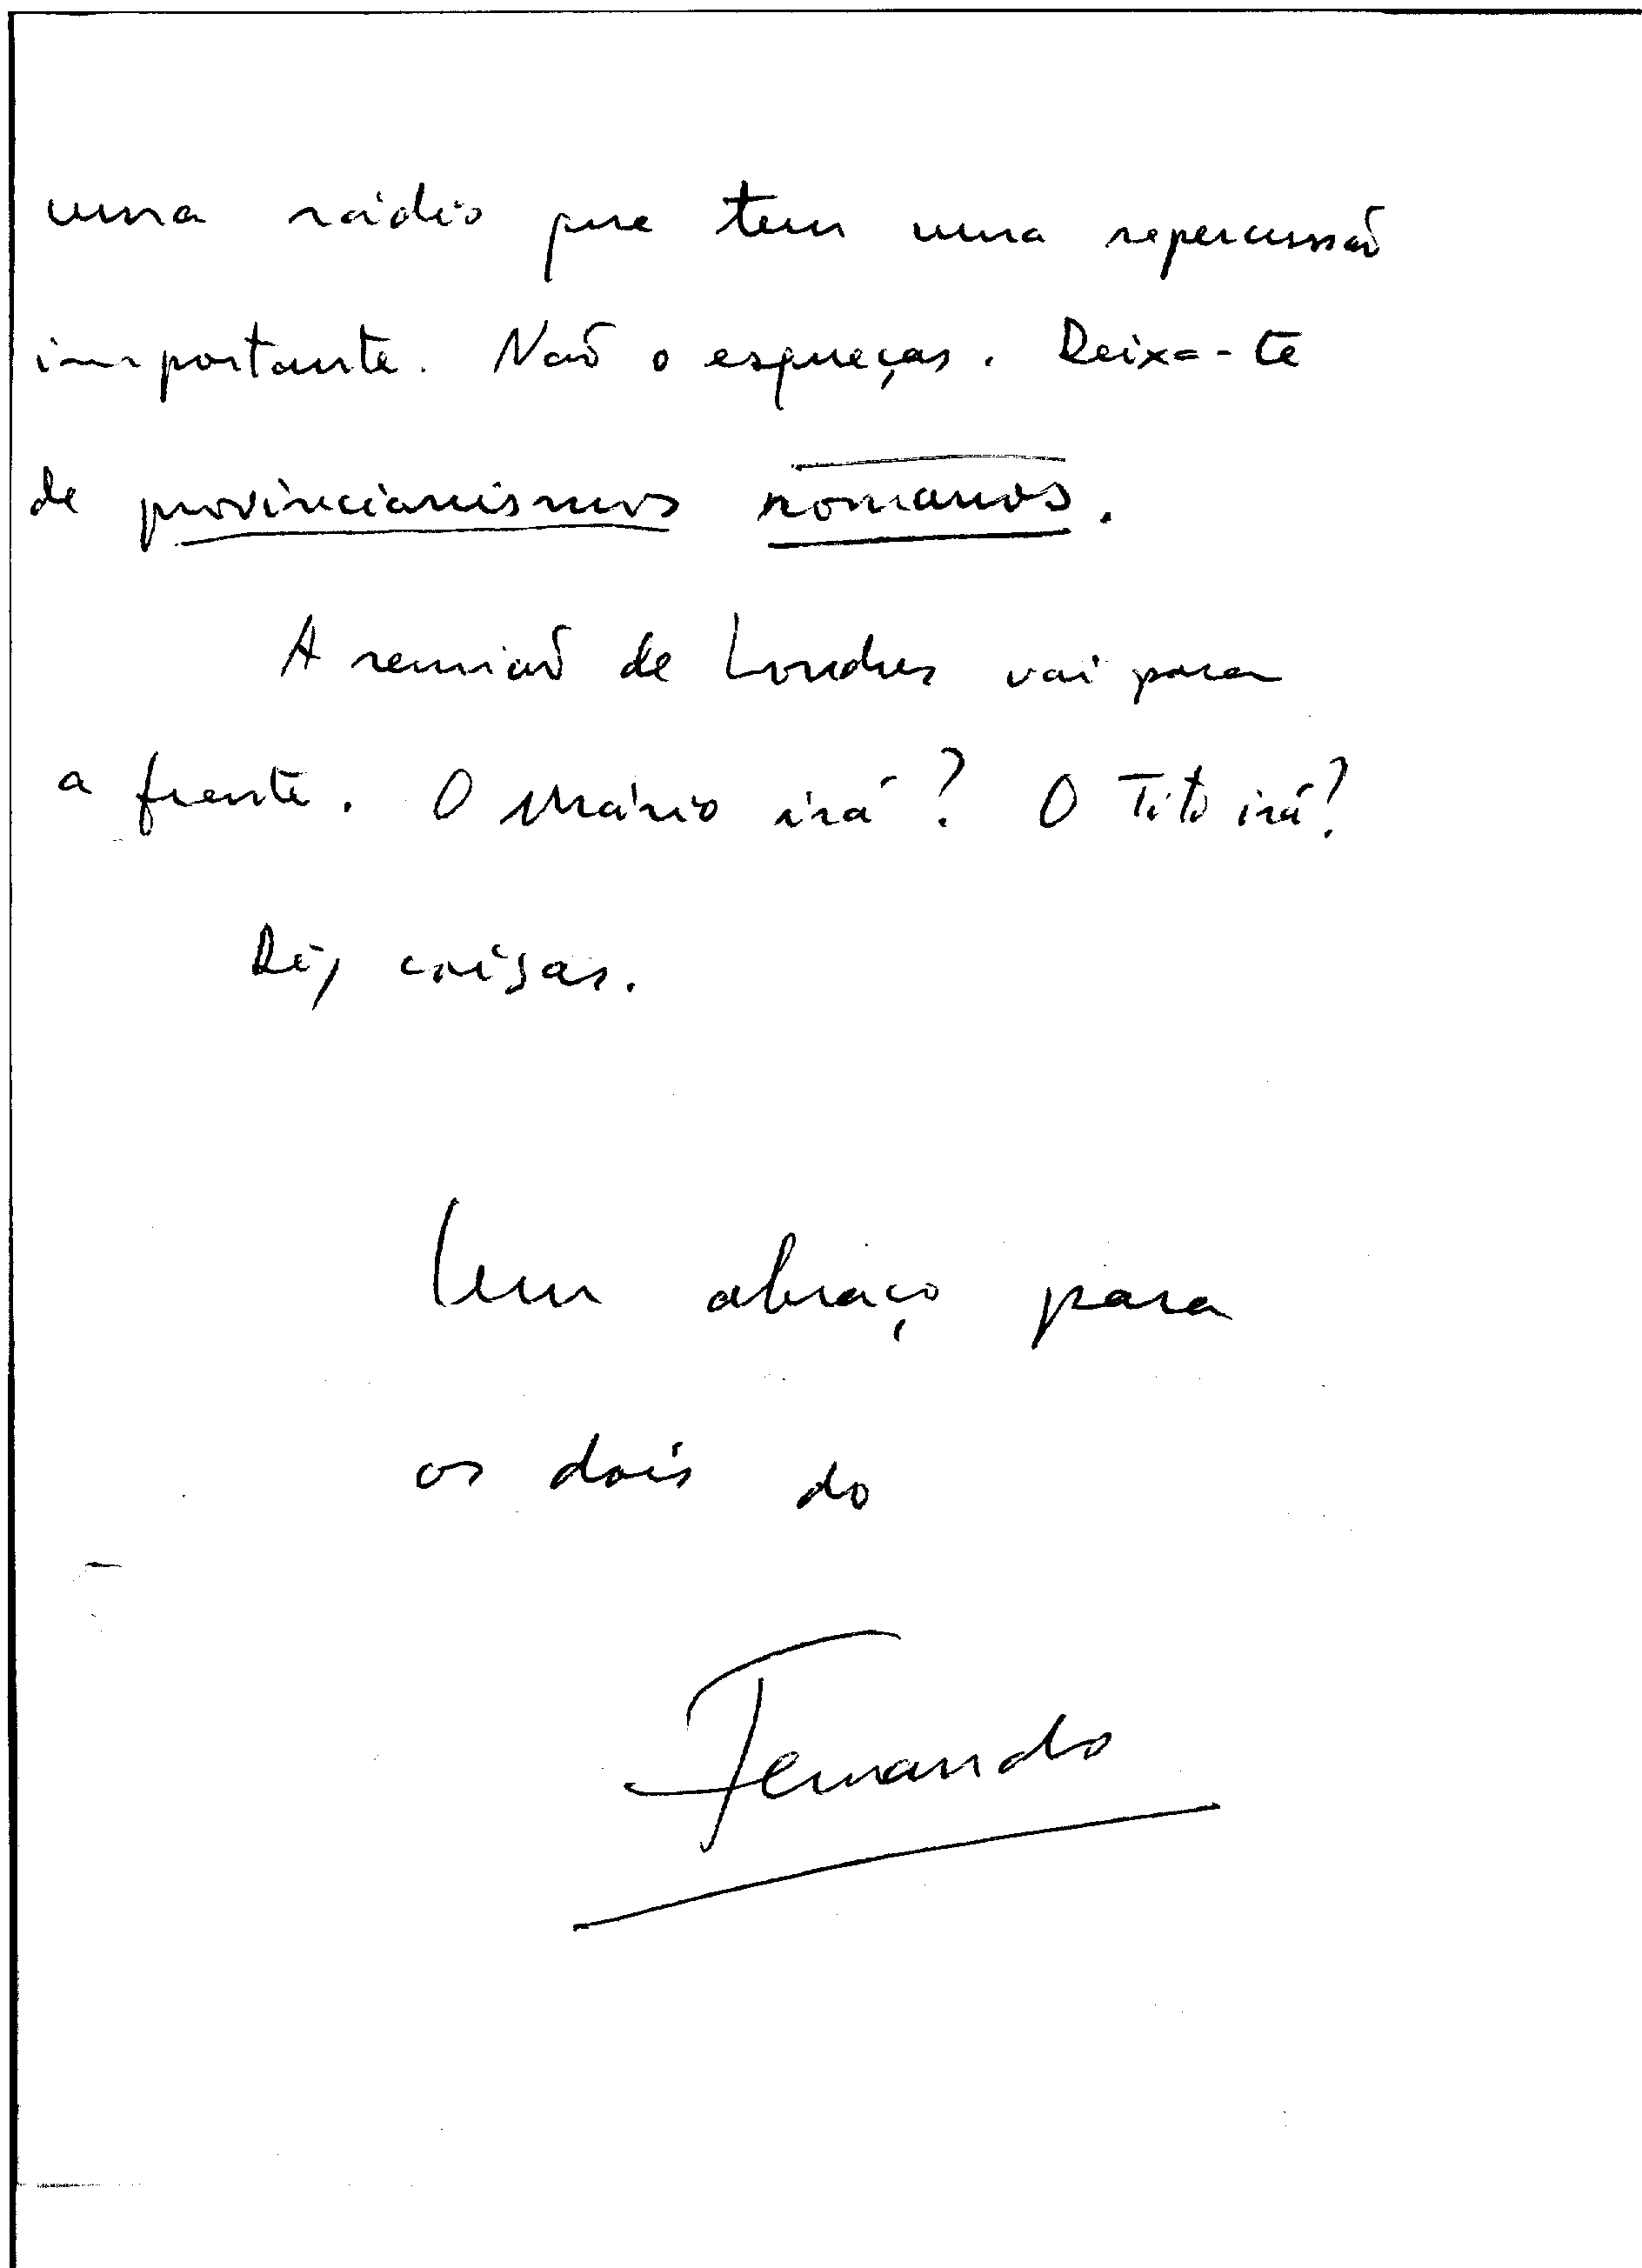 uma rádio que tem uma repercussão
importante. Não o esqueças. Deixa-te
de provincianismos romanos.
A reunião de Londres vai para
a frente. O Mário irá? O Tito irá?
Diz coisas.
Um abraço para
os dois do
Fernando